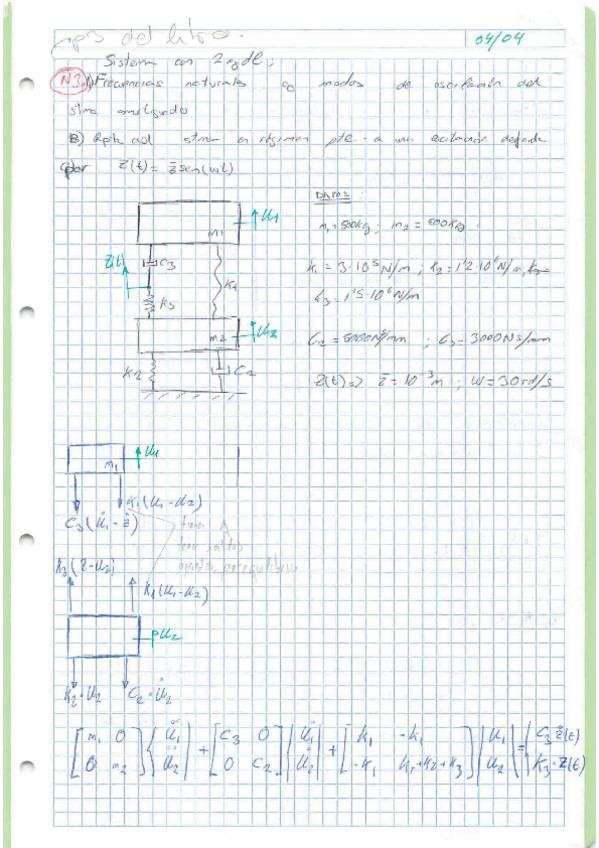 nº3 del libro.
04/04
Sistema con 2 gdl:
N3 A) Frecuencias naturales y modos de oscilación del
stma amortiguado
B) Rpta del stma en régimen pte a una excitación definida
por Z(t) = z̄ sen(ωt)
DATOS:
m₁ = 500kg ; m₂ = 600kg.
K₁ = 3·10⁵ N/m ; K₂ = 1'2·10⁶ N/m,
K₃ = 1'5·10⁶ N/m
C₂ = 5000 Ns/mm ; C₃ = 3000 Ns/mm
Z(t) => z̄ = 10⁻³ m ; ω = 30 rd/s
m₁ u₁
Z(t) C₃ K₁
K₃
m₂ u₂
K₂ C₂
m₁ u₁
K₁(u₁-u₂)
C₃(u̇₁-ż)
K₃(z-u₂)
K₁(u₁-u₂)
u₂
K₂·u₂ C₂·u̇₂
[m₁ 0; 0 m₂]{ü₁; ü₂} + [C₃ 0; 0 C₂]{u̇₁; u̇₂} + [K₁ -K₁; -K₁ K₁+K₂+K₃]{u₁; u₂} = {C₃ ż(t); K₃·z(t)}